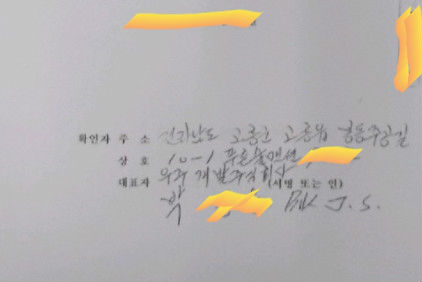 확인자 주 소 전라남도 고흥군 고흥읍
상 호 10-1 푸른솔맨션
대표자 우주개발주식회사 (서명 또는 인)
박 Park J. S.